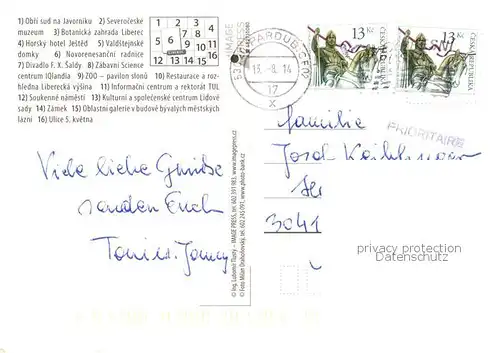 1) Obří sud na Javorníku 2) Severočeské
muzeum 3) Botanická zahrada Liberec
4) Horský hotel Ještěd 5) Valdštejnské
domky 6) Novorenesanční radnice
7) Divadlo F. X. Šaldy 8) Zábavní Science
centrum IQlandia 9) ZOO – pavilon slonů 10) Restaurace a roz-
hledna Liberecká výšina 11) Informační centrum a rektorát TUL
12) Soukenné náměstí 13) Kulturní a společenské centrum Lidové
sady 14) Zámek 15) Oblastní galerie v budově bývalých městských
lázní 16) Ulice 5. května
1 2 3
4 5 6 7
8 9 10 11
12 13 14 15 16
IMAGE
PRESS
PARDUBICE 02
13. -8. 14
17
X
13 Kč
ČESKÁ REPUBLIKA
13 Kč
ČESKÁ REPUBLIKA
PRIORITAIRE
Familie
Josef
3041
Viele liebe Grüsse
senden Euch
© Ing. Lubomír Tlustý – IMAGE PRESS, tel. 602 391 983, www.imagepress.cz
© Foto Milan Drahoňovský, tel. 602 245 091, www.photo-bank.cz
privacy protection
Datenschutz